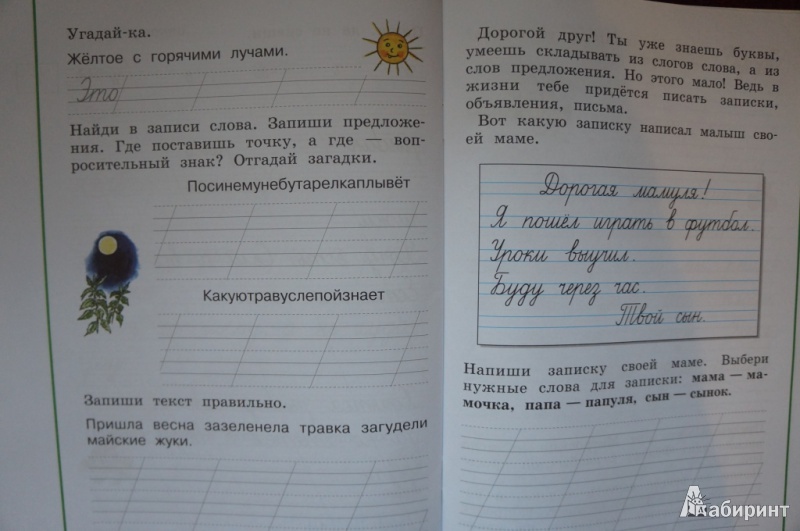 Угадай-ка.
Жёлтое с горячими лучами.
Это
Найди в записи слова. Запиши предложе-
ния. Где поставишь точку, а где — воп-
росительный знак? Отгадай загадки.
Посинемунебутарелкаплывёт
Какуютравуслепойзнает
Запиши текст правильно.
Пришла весна зазеленела травка загудели
майские жуки.
Дорогой друг! Ты уже знаешь буквы,
умеешь складывать из слогов слова, а из
слов предложения. Но этого мало! Ведь в
жизни тебе придётся писать записки,
объявления, письма.
Вот какую записку написал малыш сво-
ей маме.
Дорогая мамуля!
Я пошёл играть в футбол.
Уроки выучил.
Буду через час.
Твой сын.
Напиши записку своей маме. Выбери
нужные слова для записки: мама — ма-
мочка, папа — папуля, сын — сынок.
Лабиринт